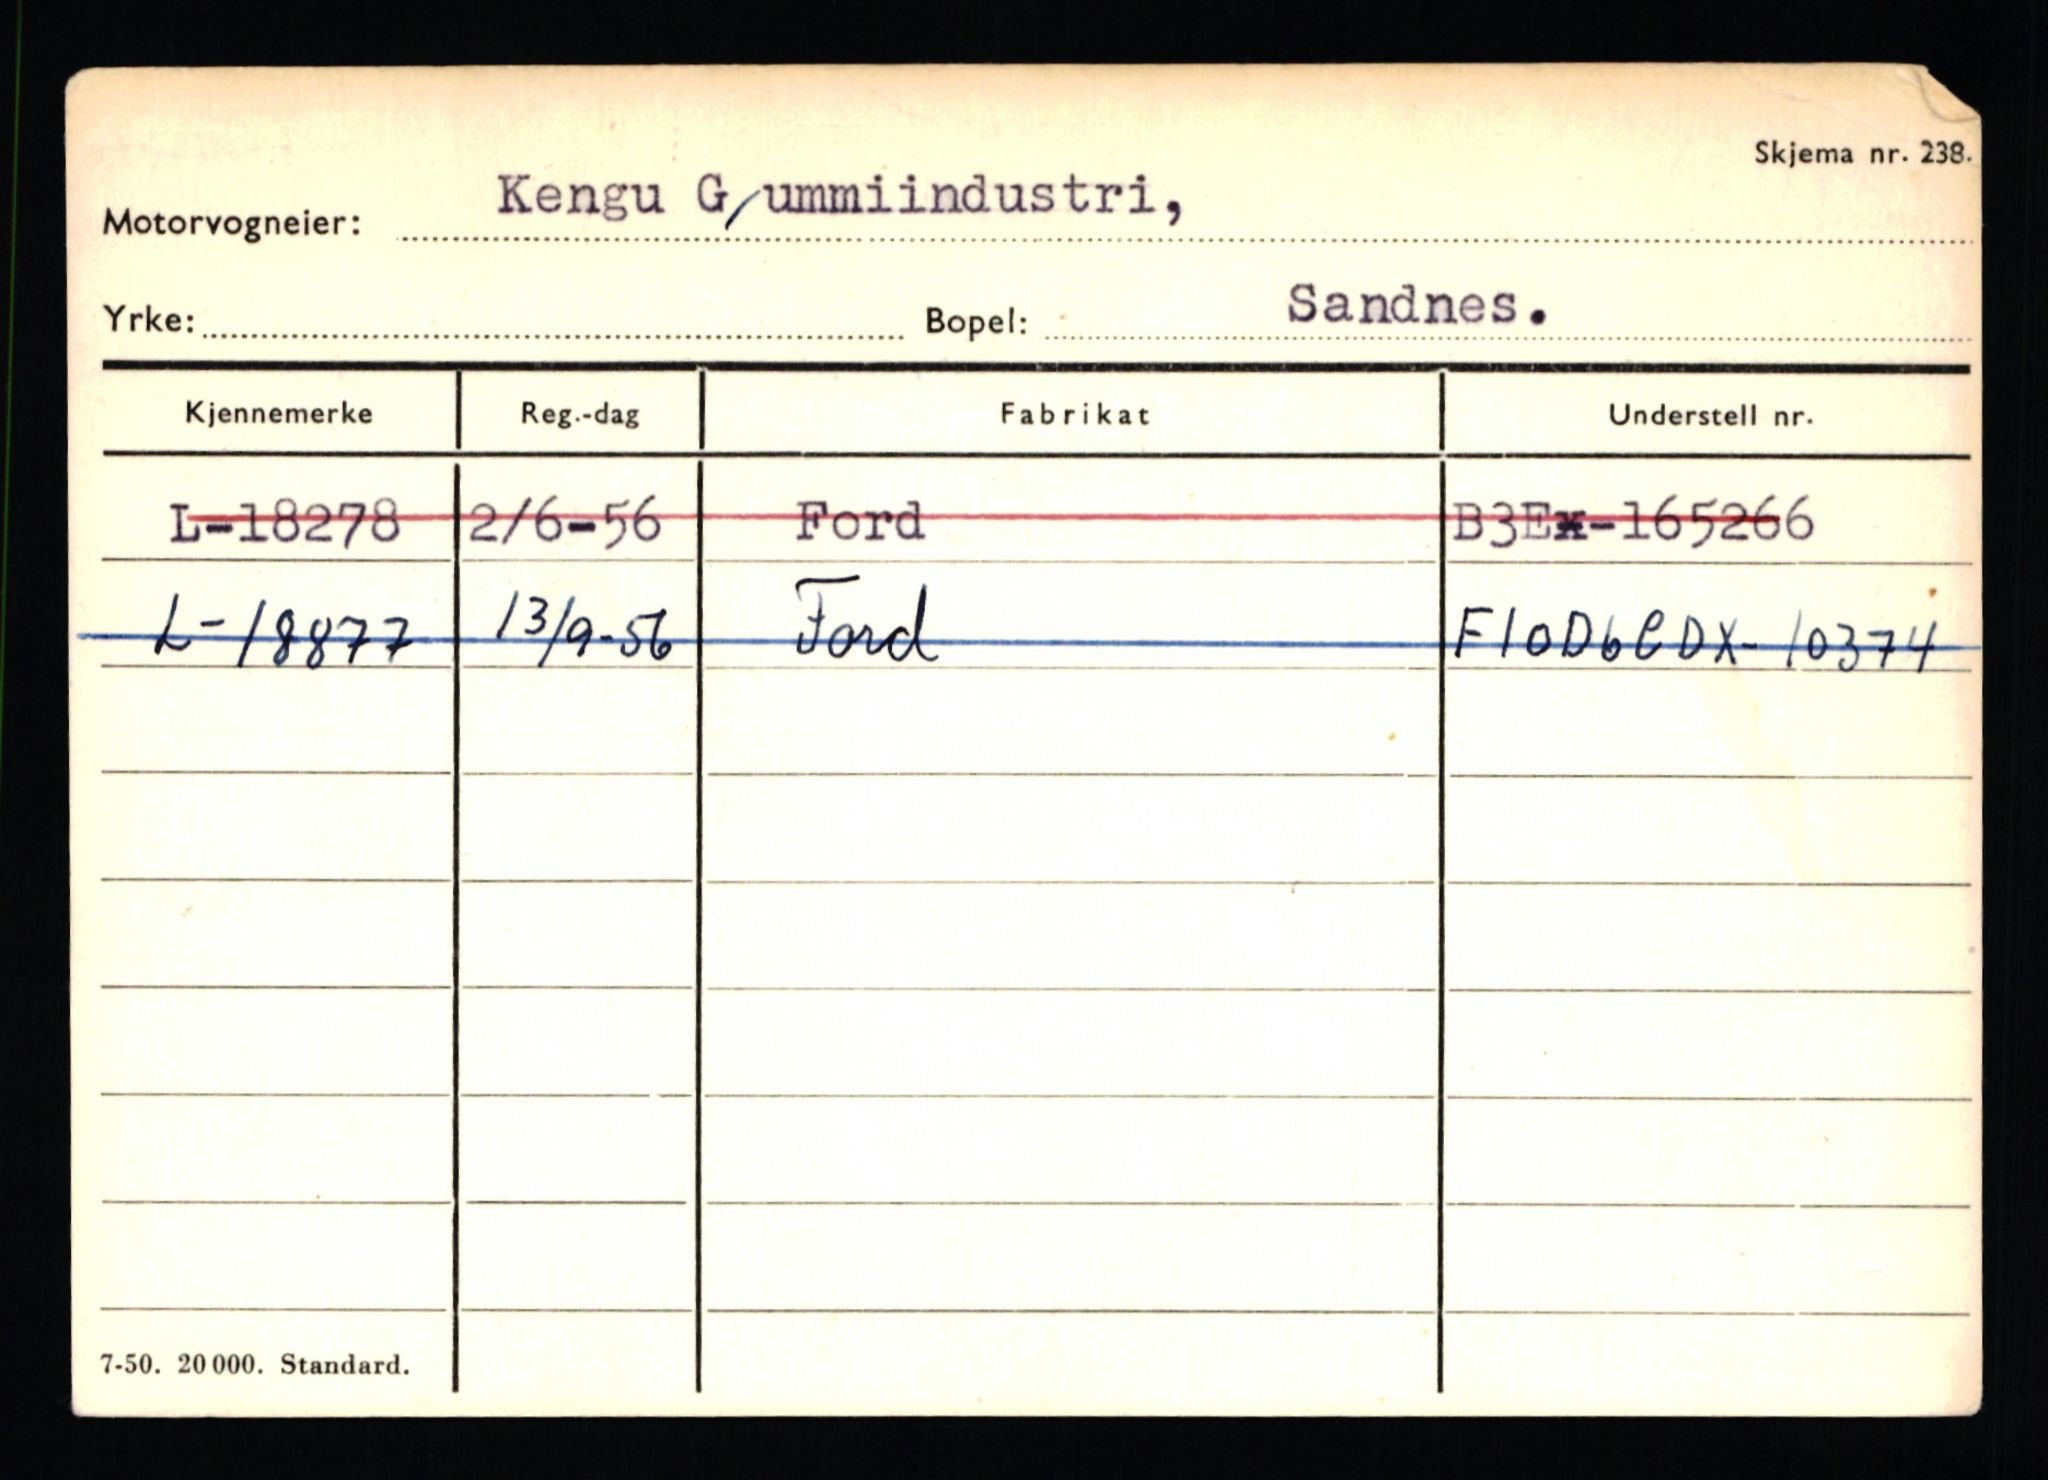 Skjema nr. 238.
Motorvogneier: Kengu G/ummiindustri,
Yrke: Bopel: Sandnes.
Kjennemerke Reg.-dag Fabrikat Understell nr.
L-18278 2/6-56 Ford B3Ex-165266
L-18877 13/9-56 Ford F10D6CDX-10374
7-50. 20 000. Standard.